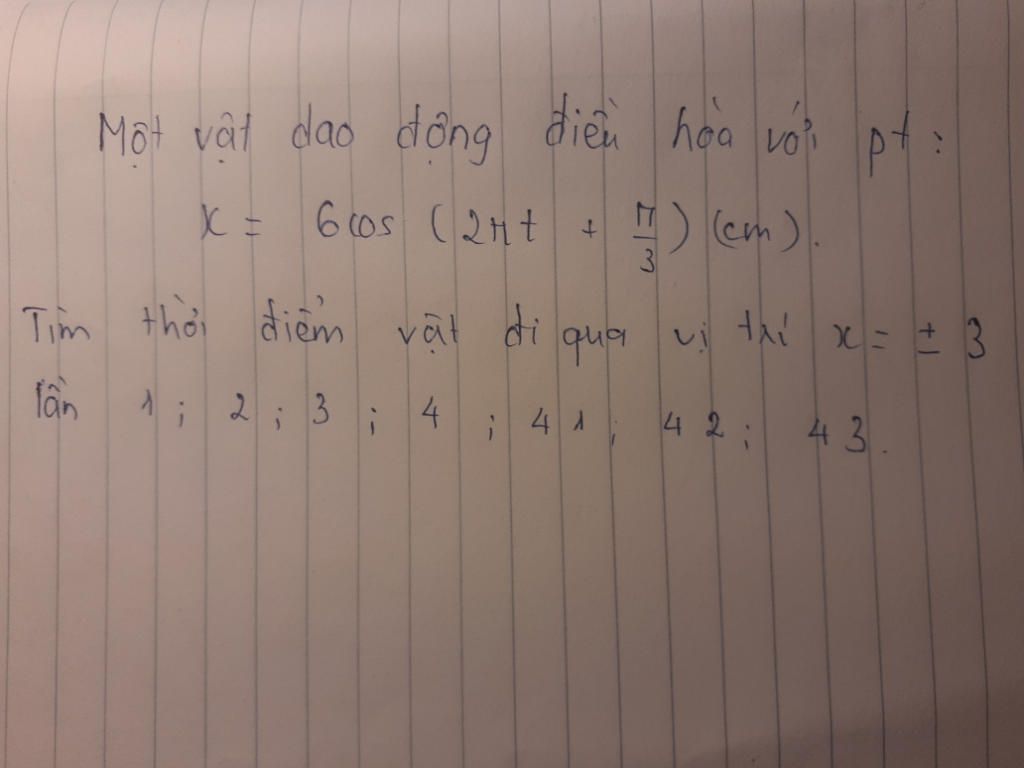 Một vật dao động điều hòa với pt:
x = 6cos (2πt + π/3) (cm).
Tìm thời điểm vật đi qua vị trí x = ± 3
lần 1; 2; 3; 4; 41; 42; 43.